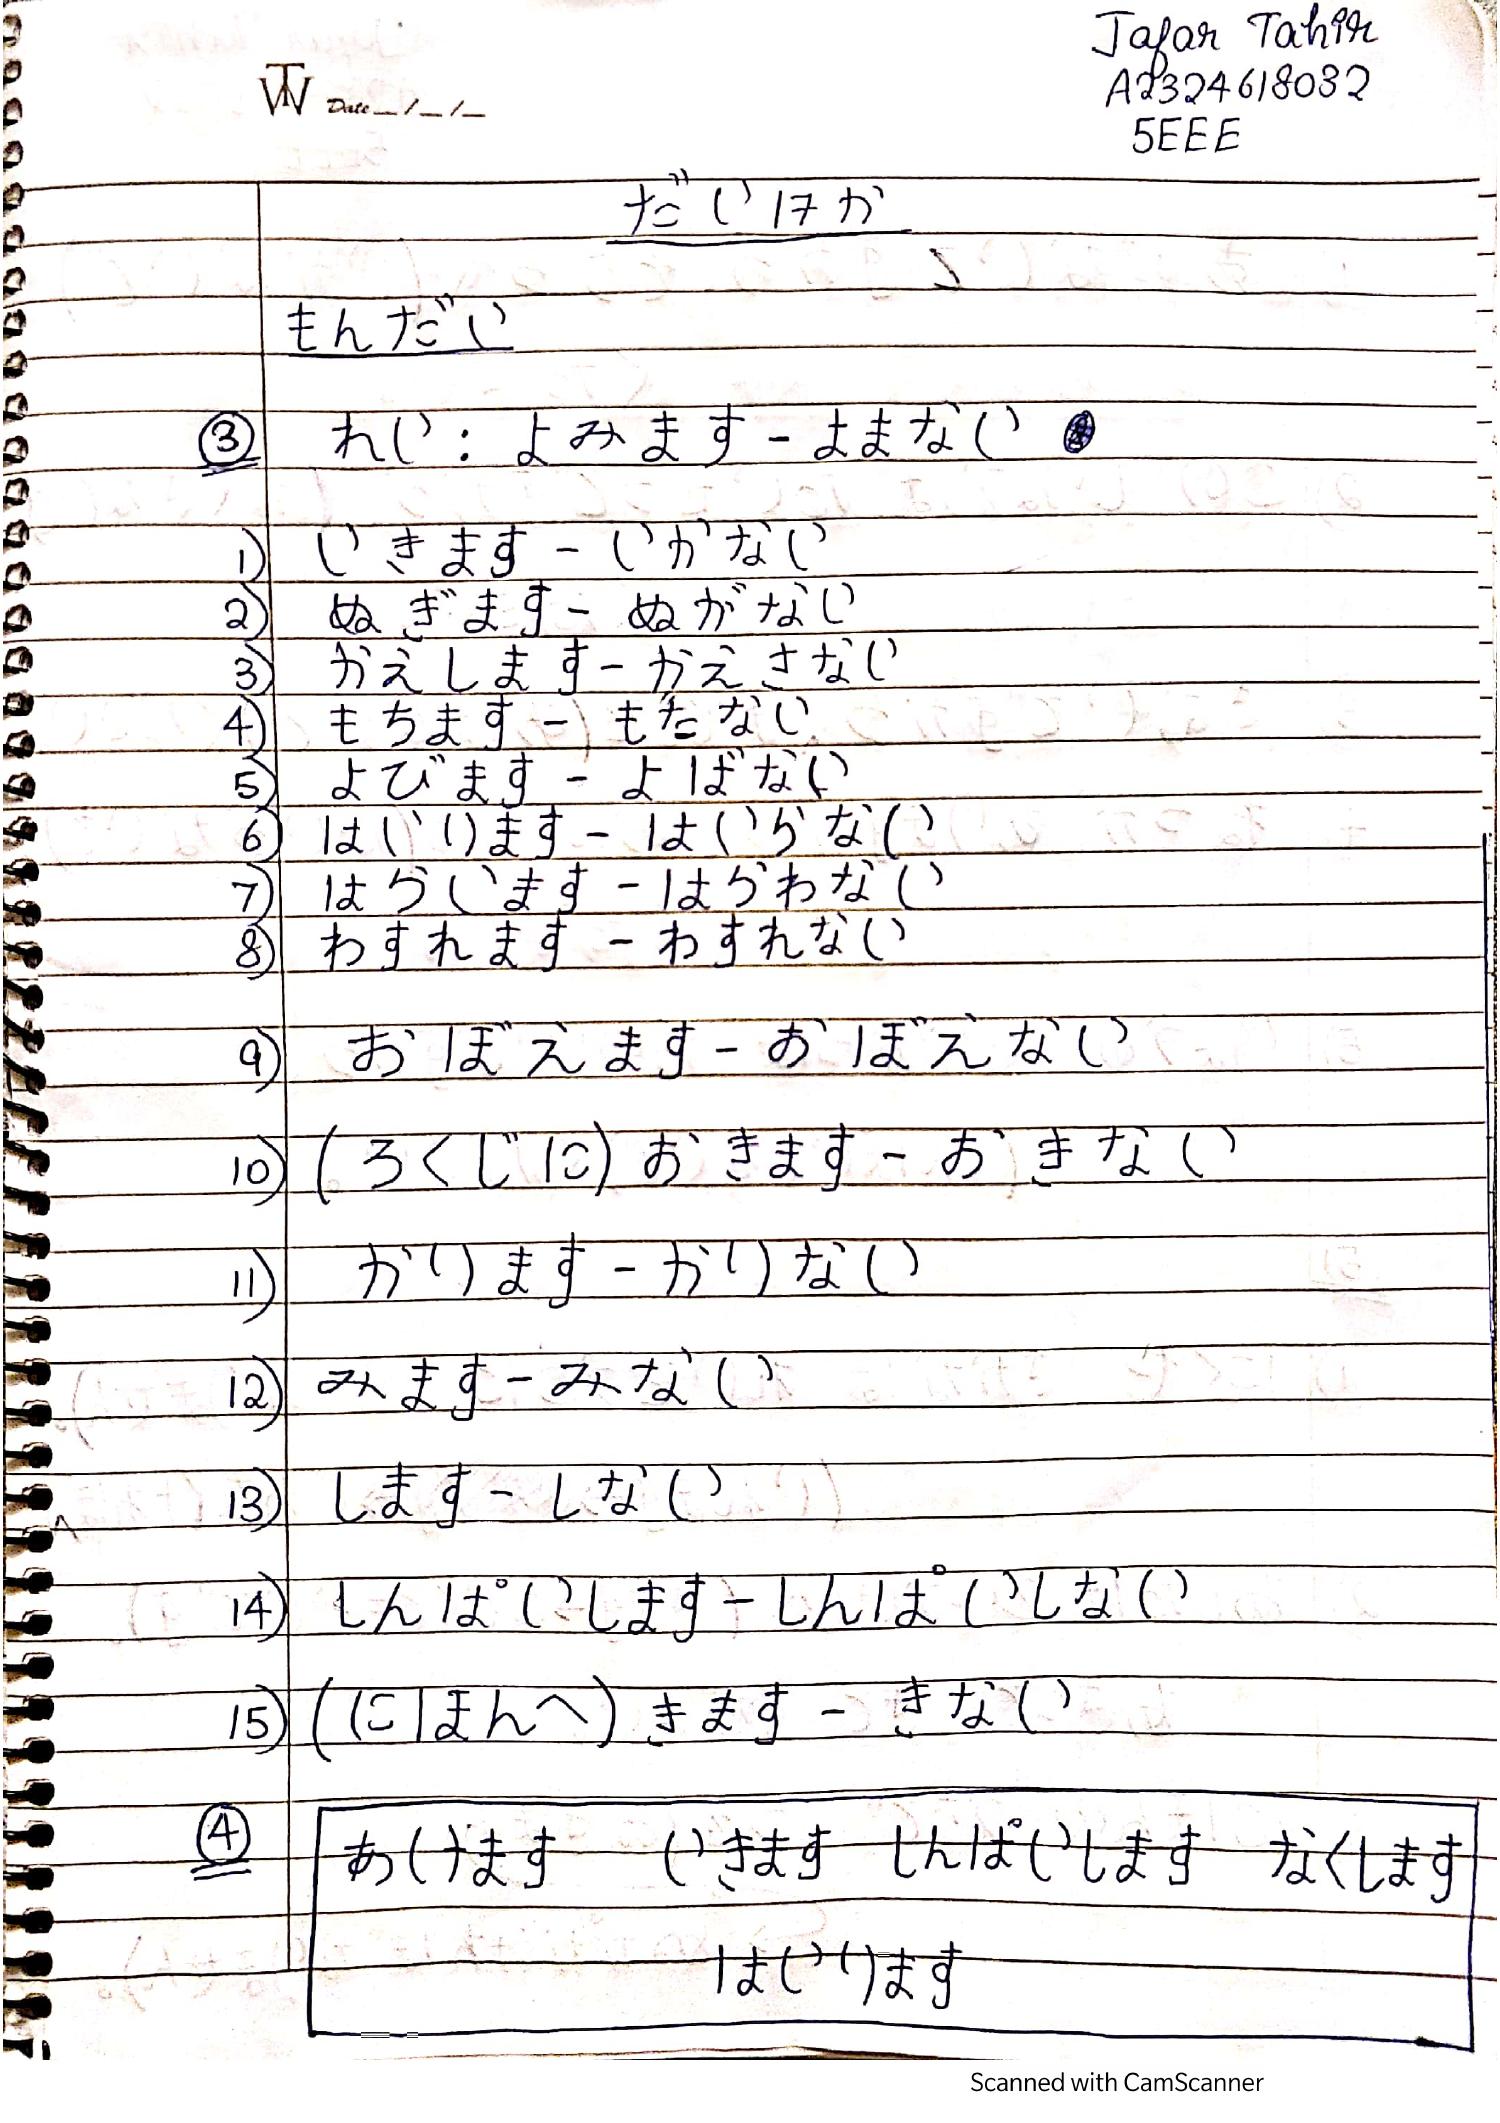 Jafar Tahir
A2324618032
5EEE
TW Date _/_/_
だい17か
もんだい
③ れい: よみます - よまない
1) いきます - いかない
2) ぬぎます - ぬがない
3) かえします - かえさない
4) もちます - もたない
5) よびます - よばない
6) はいります - はいらない
7) はらいます - はらわない
8) わすれます - わすれない
9) おぼえます - おぼえない
10) (ろくじに) おきます - おきない
11) かります - かりない
12) みます - みない
13) します - しない
14) しんぱいします - しんぱいしない
15) (にほんへ) きます - きない
④ あけます いきます しんぱいします なくします
はいります
Scanned with CamScanner